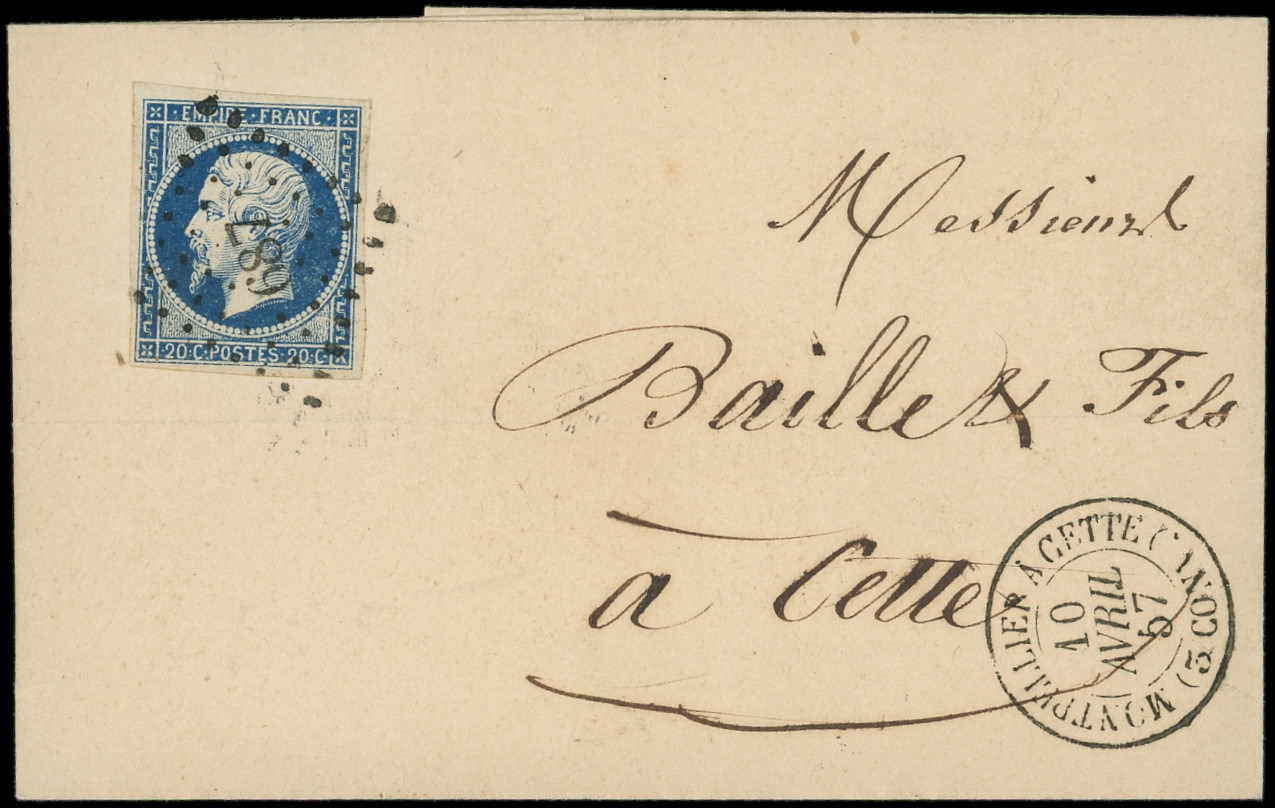 EMPIRE · FRANC ·
689
20·C·POSTES·20·C
Messieurs
Baille & Fils
à Cette
MONTPELLIER A CETTE
10
AVRIL
57